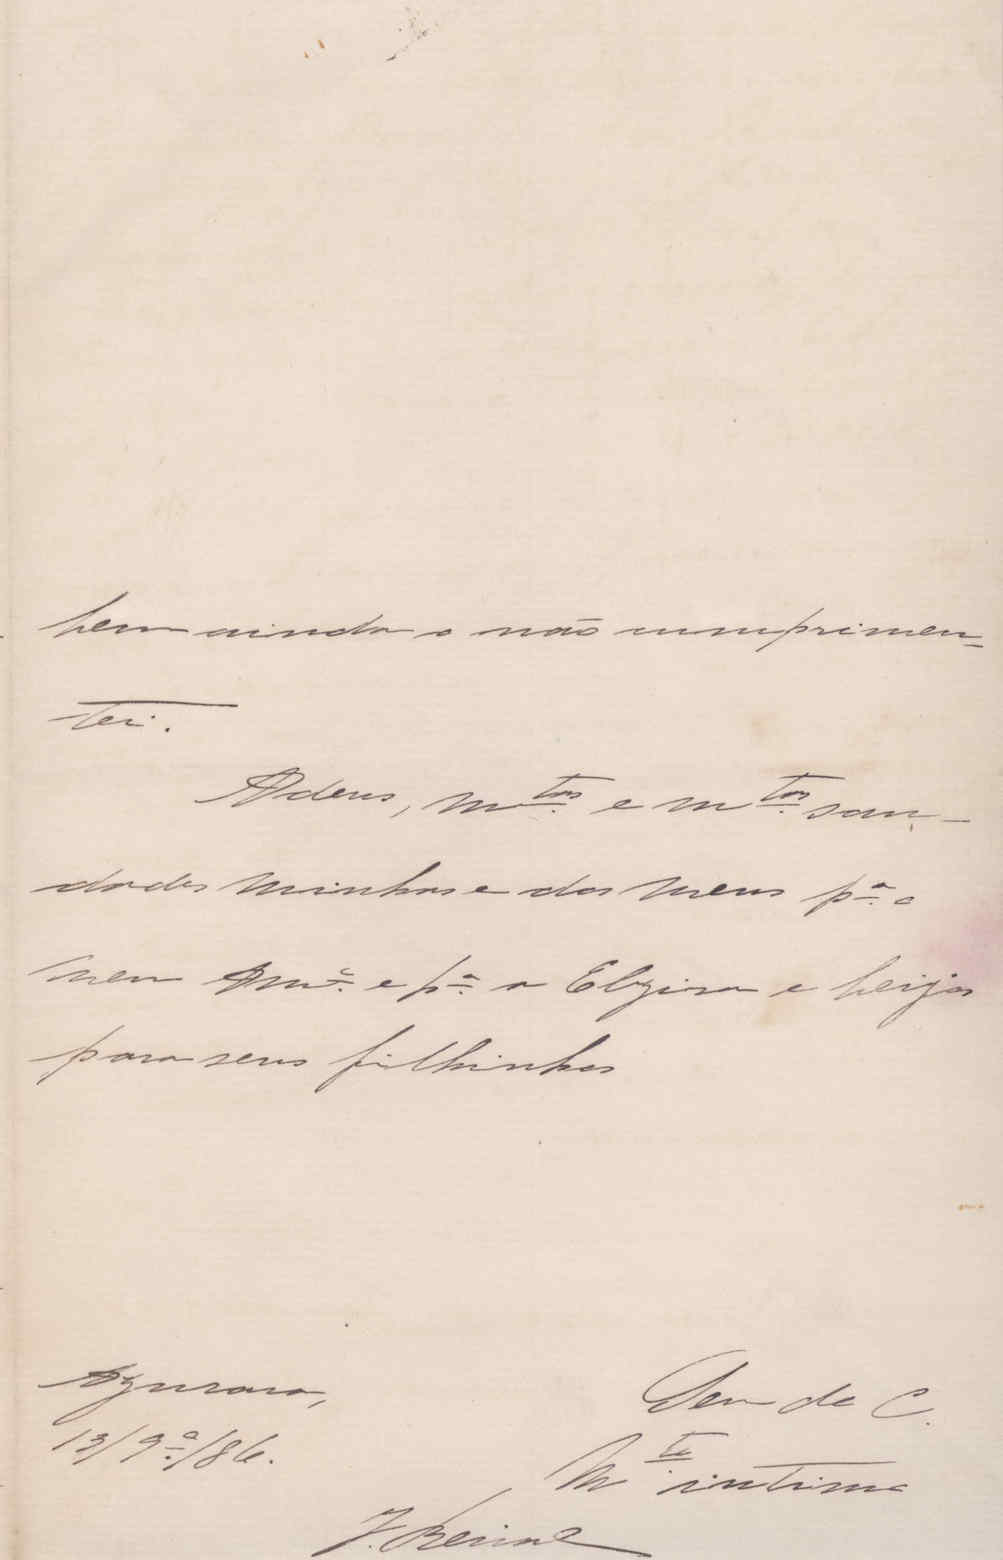 bem ainda o não cumprimen-
tei.
Adeus, mtas e mtas sau-
dades minhas e dos meus pa o
meu Amo e pa a Elzira e beijos
para seus filhinhos
Azurara,
13/9o/86.
Seu de C.
Mto intimo
J.